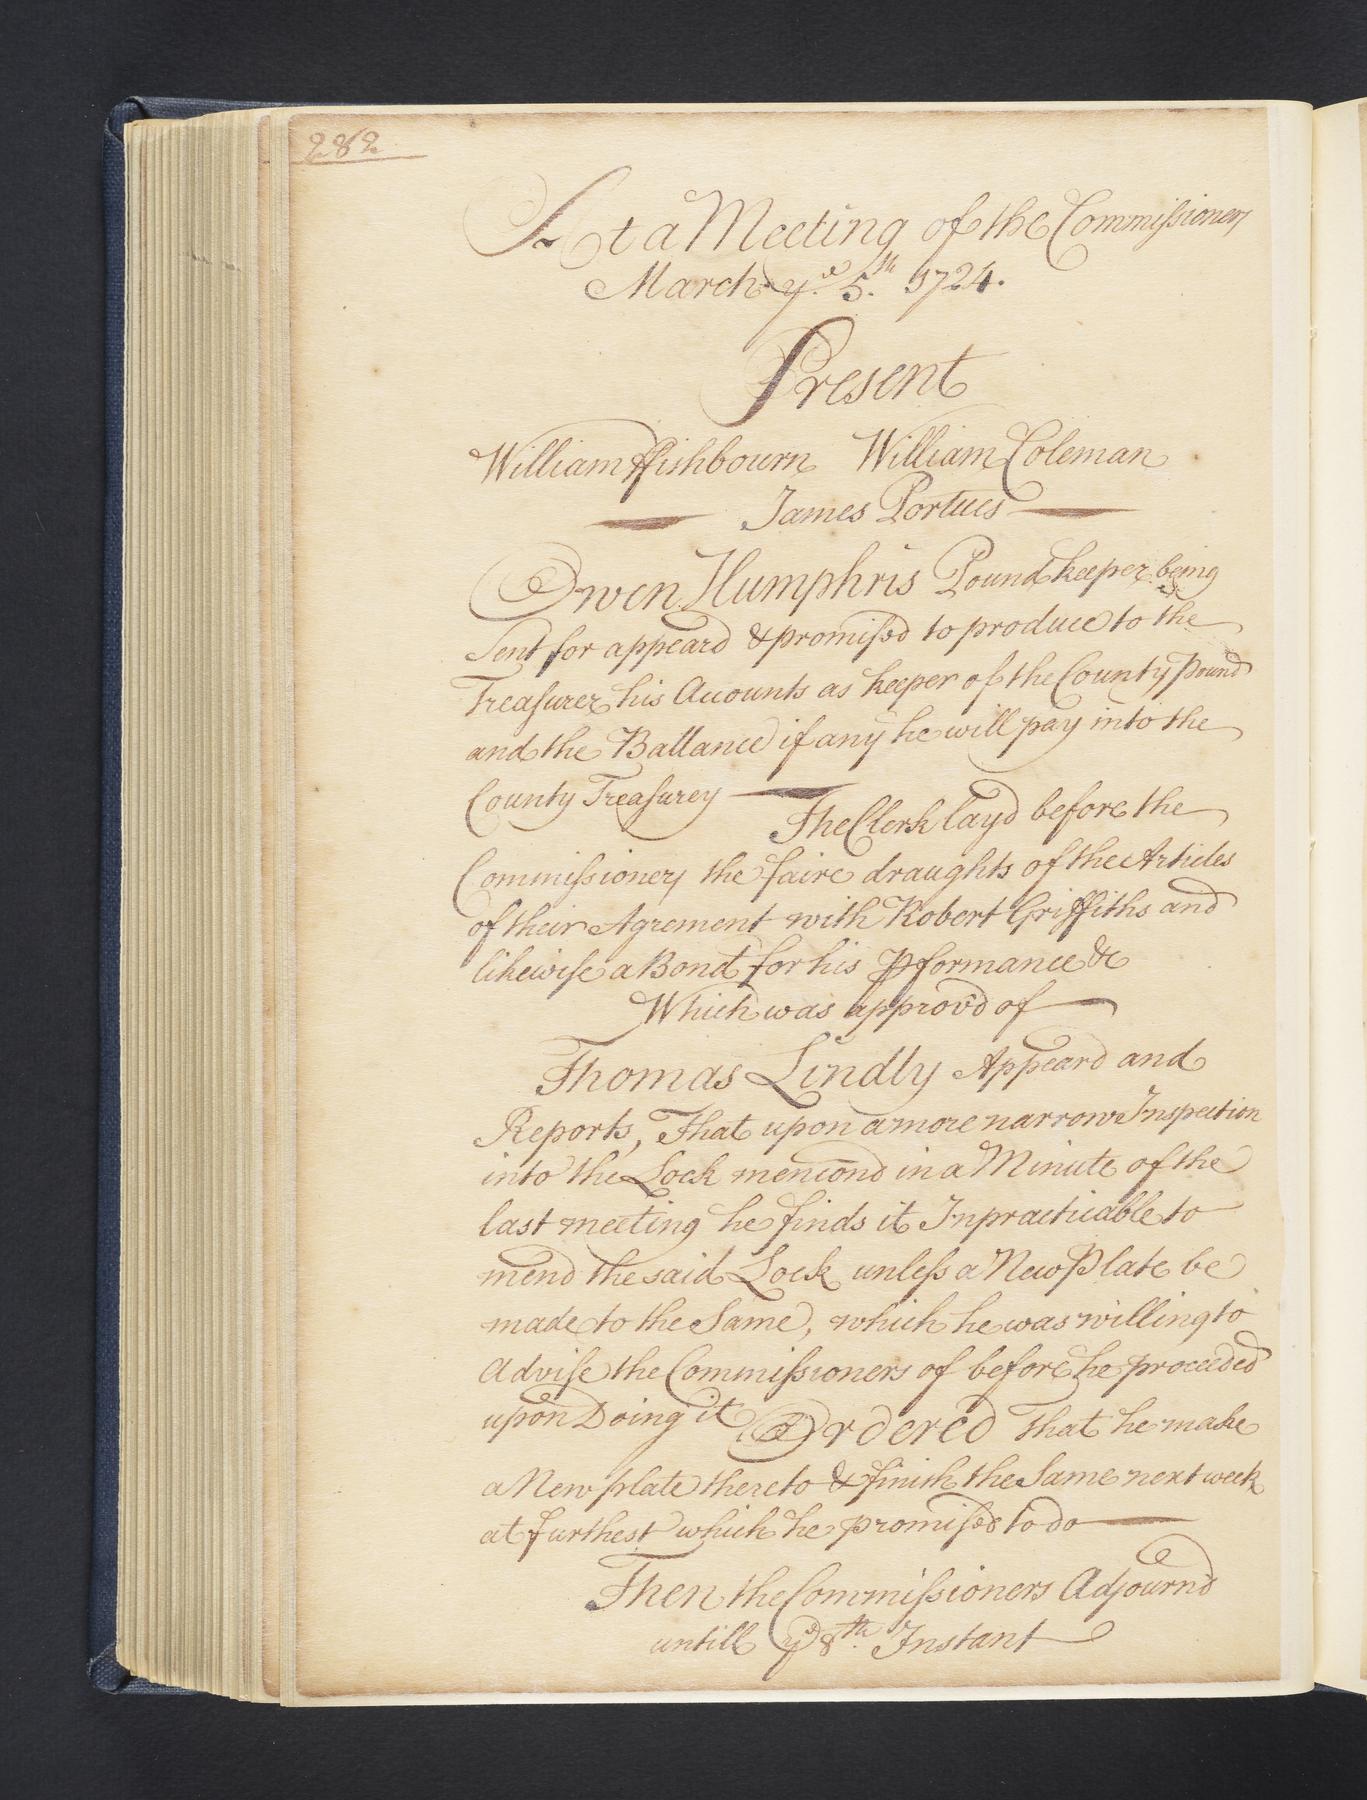 282
At a Meeting of the Commissioners
March ye. 5.th 1724.
Present
William ffishbourn William Coleman
James Portues
Owen Humphris Pound keeper being
Sent for appeard & promised to produce to the
Treasurer his Accounts as keeper of the County Pound
and the Ballance if any he will pay into the
County Treasurey
The Clerk layd before the
Commissioners the faire draughts of the Articles
of their Agrement with Robert Griffiths and
likewise a Bond for his Pformance &c
Which was approv'd of
Thomas Lindly Appeard and
Reports, That upon a more narrow Inspection
into the Lock mencond in a Minute of the
last meeting he finds it Inpracticable to
mend the said Lock unless a New Plate be
made to the Same, which he was willing to
Advise the Commissioners of before he proceeded
upon Doing it Ordered That he make
a New plate thereto & finish the Same next week
at furthest which he promised to do
Then the Commissioners Adjournd
untill ye 8.th Instant